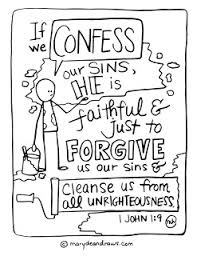 If
we CONFESS
our SINS,
HE is
faithful &
just to
FORGIVE
us our sins &
Cleanse us from
all UNRIGHTEOUSNESS.
1 JOHN 1:9
© marydeandraws.com